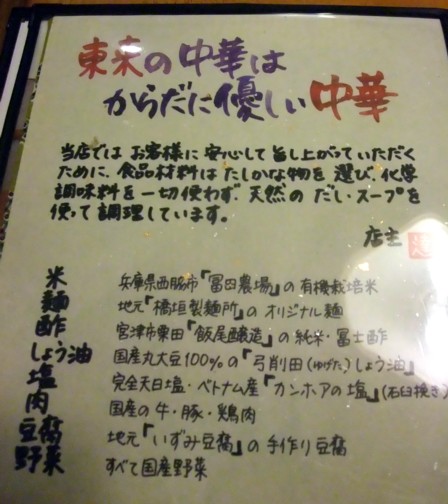 東来の中華は
からだに優しい中華
当店では お客様に 安心して 旨し上がっていただく
ために、食品材料は たしかな物を 選び、化学
調味料を 一切使わず、天然の だし・スープを
使って調理しています。
店主
米 兵庫県西脇市『冨田農場』の 有機栽培米
麺 地元『橋垣製麺所』の オリジナル麺
酢 宮津市栗田『飯尾醸造』の 純米・冨士酢
しょう油 国産丸大豆100%の『弓削田(ゆげた)しょう油』
塩 完全天日塩・ベトナム産『カンホアの塩』(石臼挽き)
肉 国産の 牛・豚・鶏肉
豆腐 地元『いずみ豆腐』の 手作り豆腐
野菜 すべて国産野菜